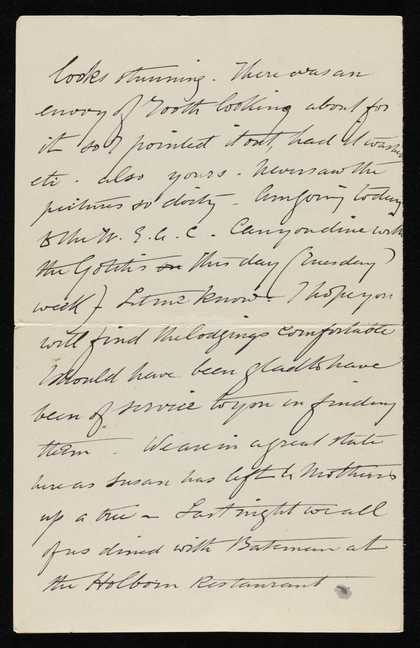 looks stunning. There was an
envoy of Tooth looking about for
it so I pointed it out, had it washed
etc. also yours. Never saw the
pictures so dirty. Am going today
to the N. E. A. C. Can you dine with
the Gotitis on This day (Tuesday)
week? Let me know. I hope you
will find the lodgings comfortable
I should have been glad to have
been of service to you in finding
them. We are in a great state
here as Susan has left & Mother is
up a tree – Last night we all
of us dined with Bateman at
the Holborn Restaurant